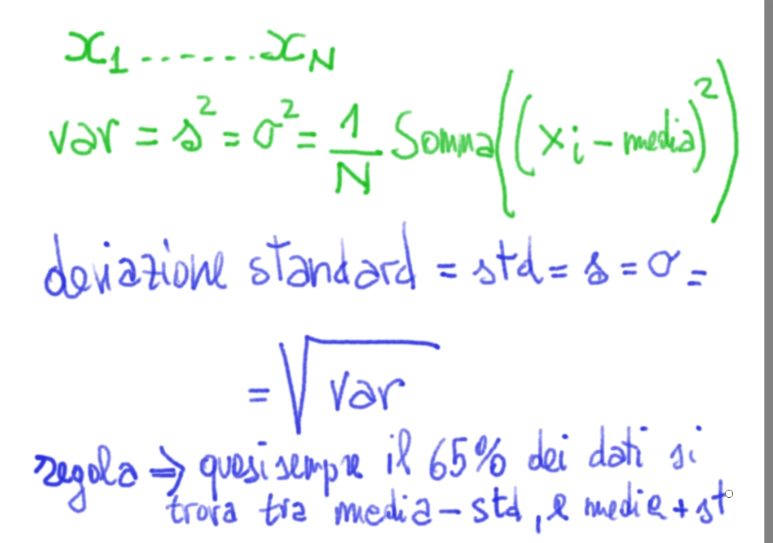 x₁ ....... x_N
var = s² = σ² = 1/N Somma((x_i - media)²)
deviazione standard = std = s = σ =
= √var
regola ⇒ quasi sempre il 65% dei dati si
trova tra media - std, e media + st